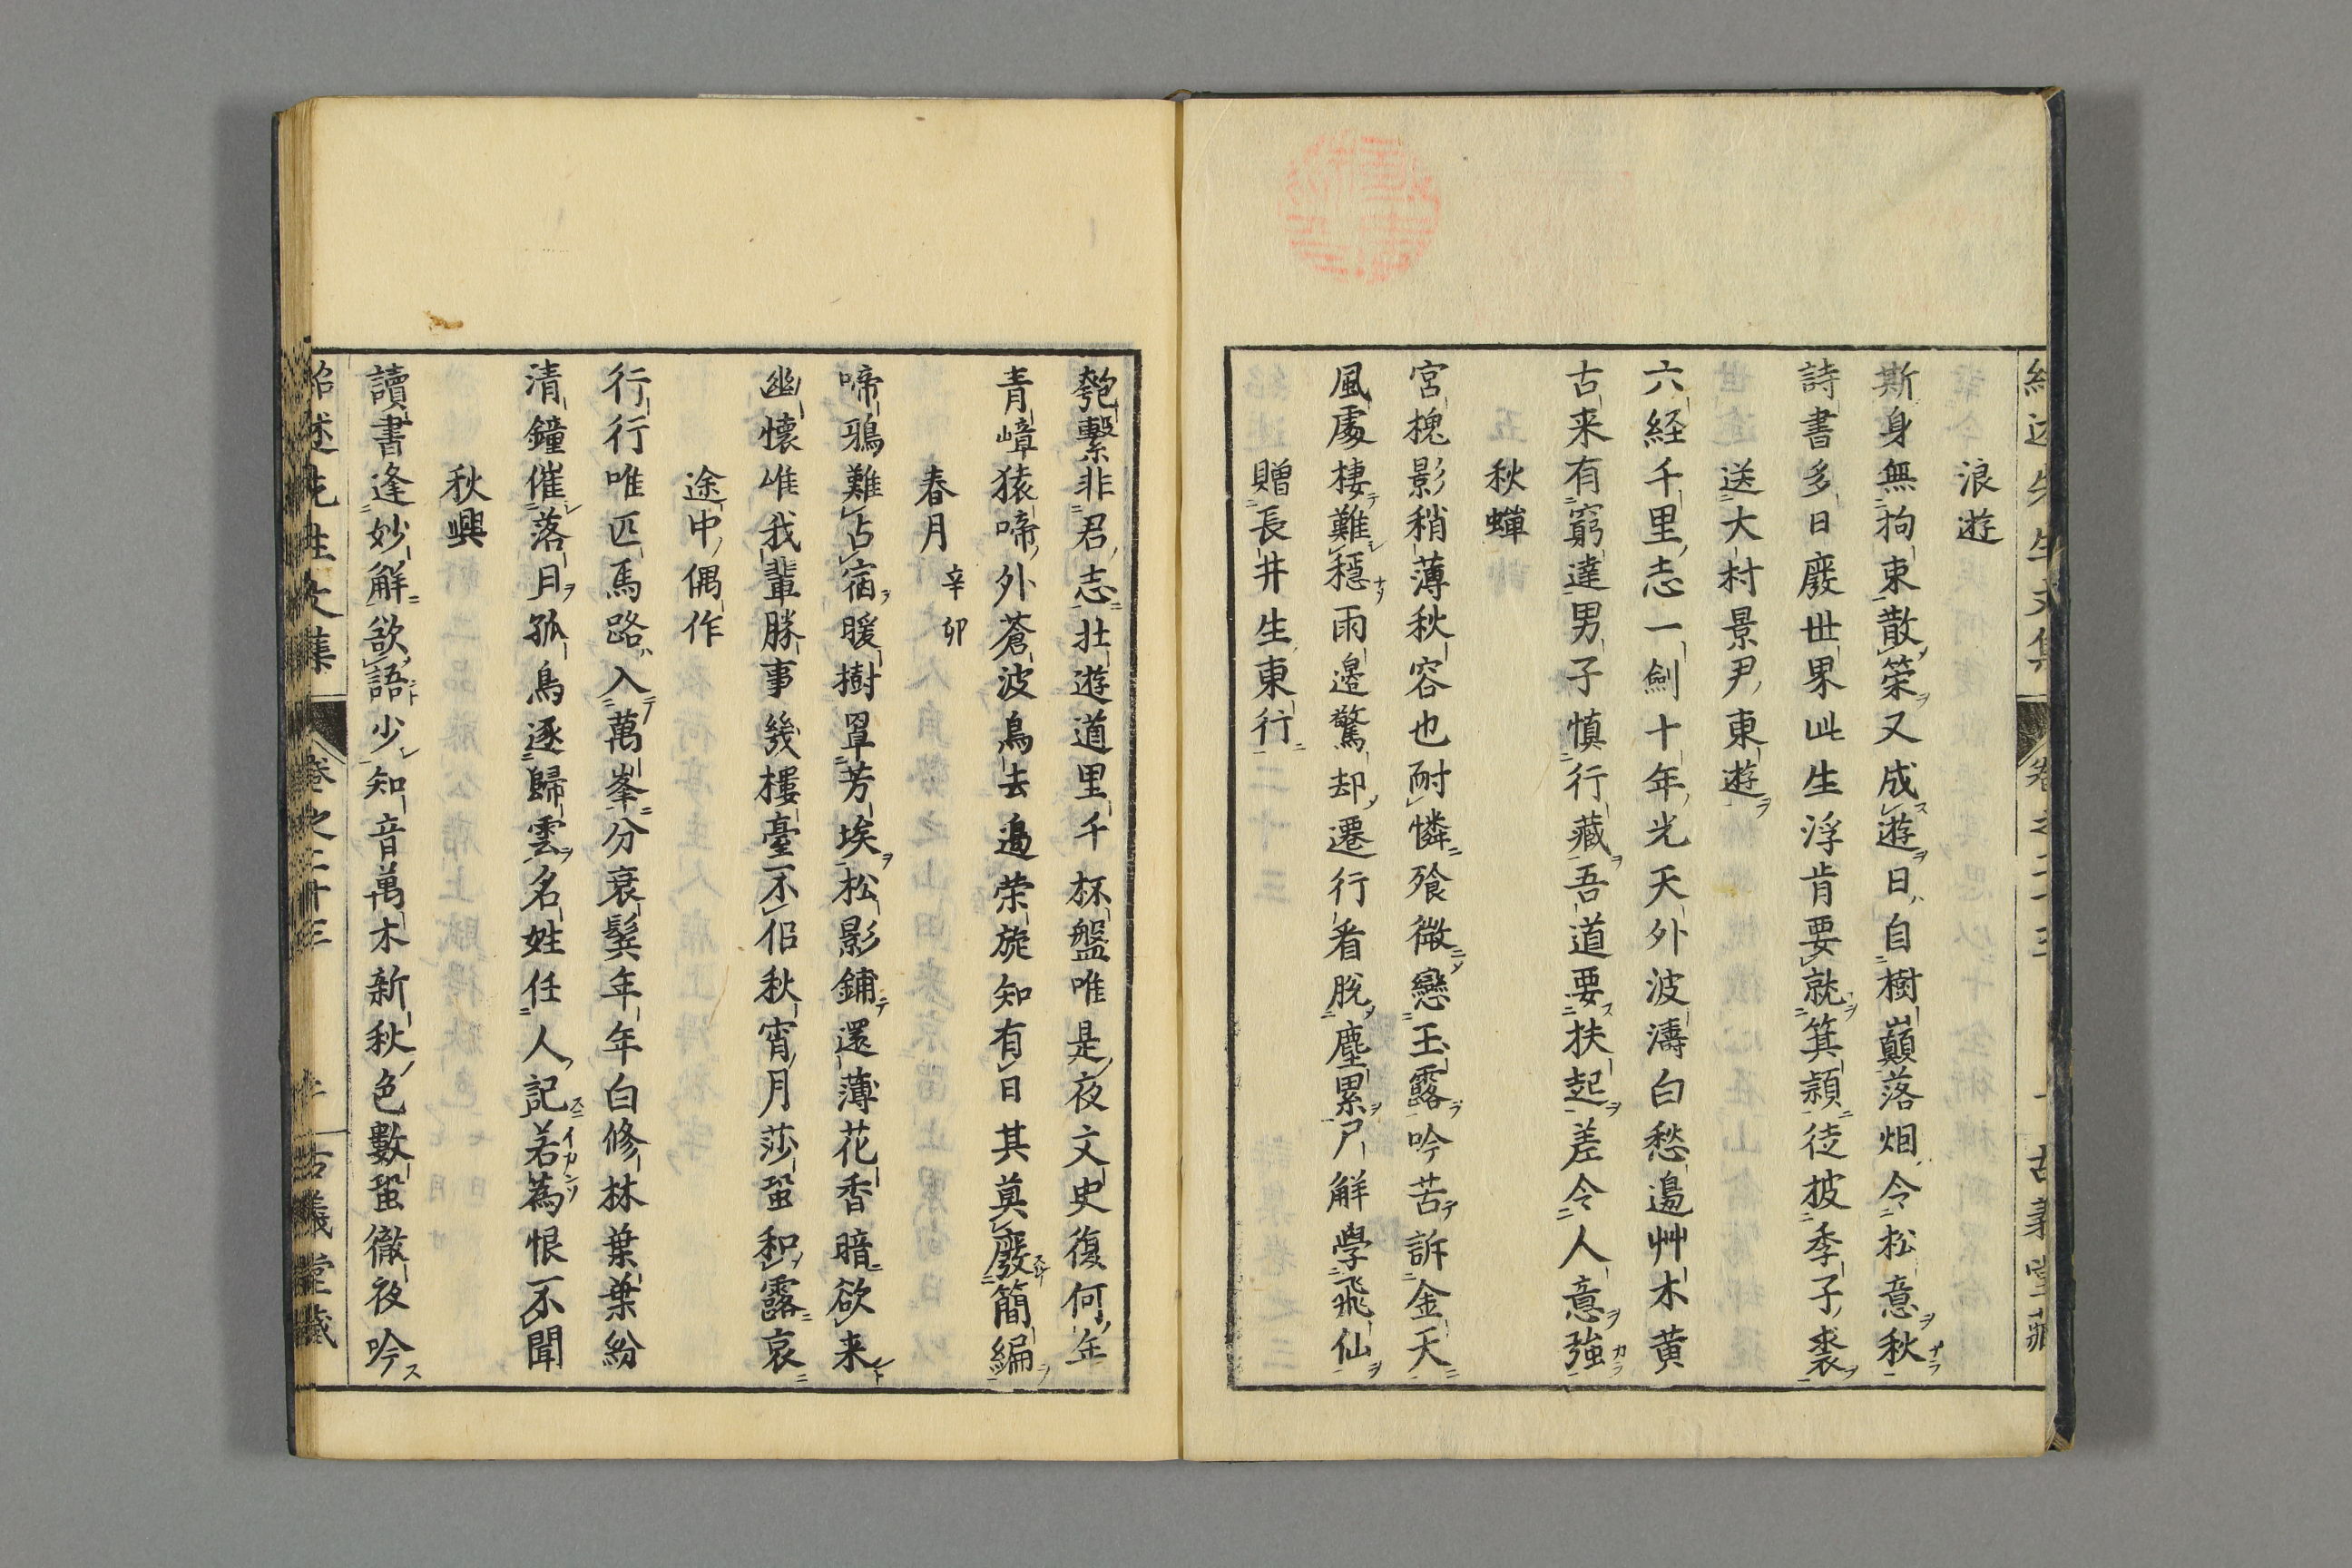 浪遊
斯身無拘束散榮又成遊日自樹巓落烟令松意秋
詩書多日廢世界此生浮肯要就箕潁徒披季子裘
送大村景尹東遊
六経千里志一劍十年光天外波濤白愁邉艸木黄
古来有窮達男子慎行藏吾道要扶起差令人意強
秋蟬
宮槐影稍薄秋容也耐憐飱微戀玉露吟苦訴金天
風處棲難穩雨邉驚却遷行看脫塵累尸解學飛仙
贈長井生東行
匏繫非君志壮遊道里千杯盤唯是夜文史復何年
青嶂猿啼外蒼波鳥去邉榮旋知有日其莫廢簡編
春月 辛卯
啼鴉難占宿暖樹罩芳埃松影鋪還薄花香暗欲来
幽懷唯我輩勝事幾樓臺不似秋宵月莎蛩和露哀
途中偶作
行行唯匹馬路入萬峯分衰鬂年年白修林葉葉紛
清鐘催落月孤鳥逐歸雲名姓任人記若為恨不聞
秋興
讀書逢妙解欲語少知音萬木新秋色數蛩徹夜吟
紹述先生文集 卷之二十三 古義堂藏